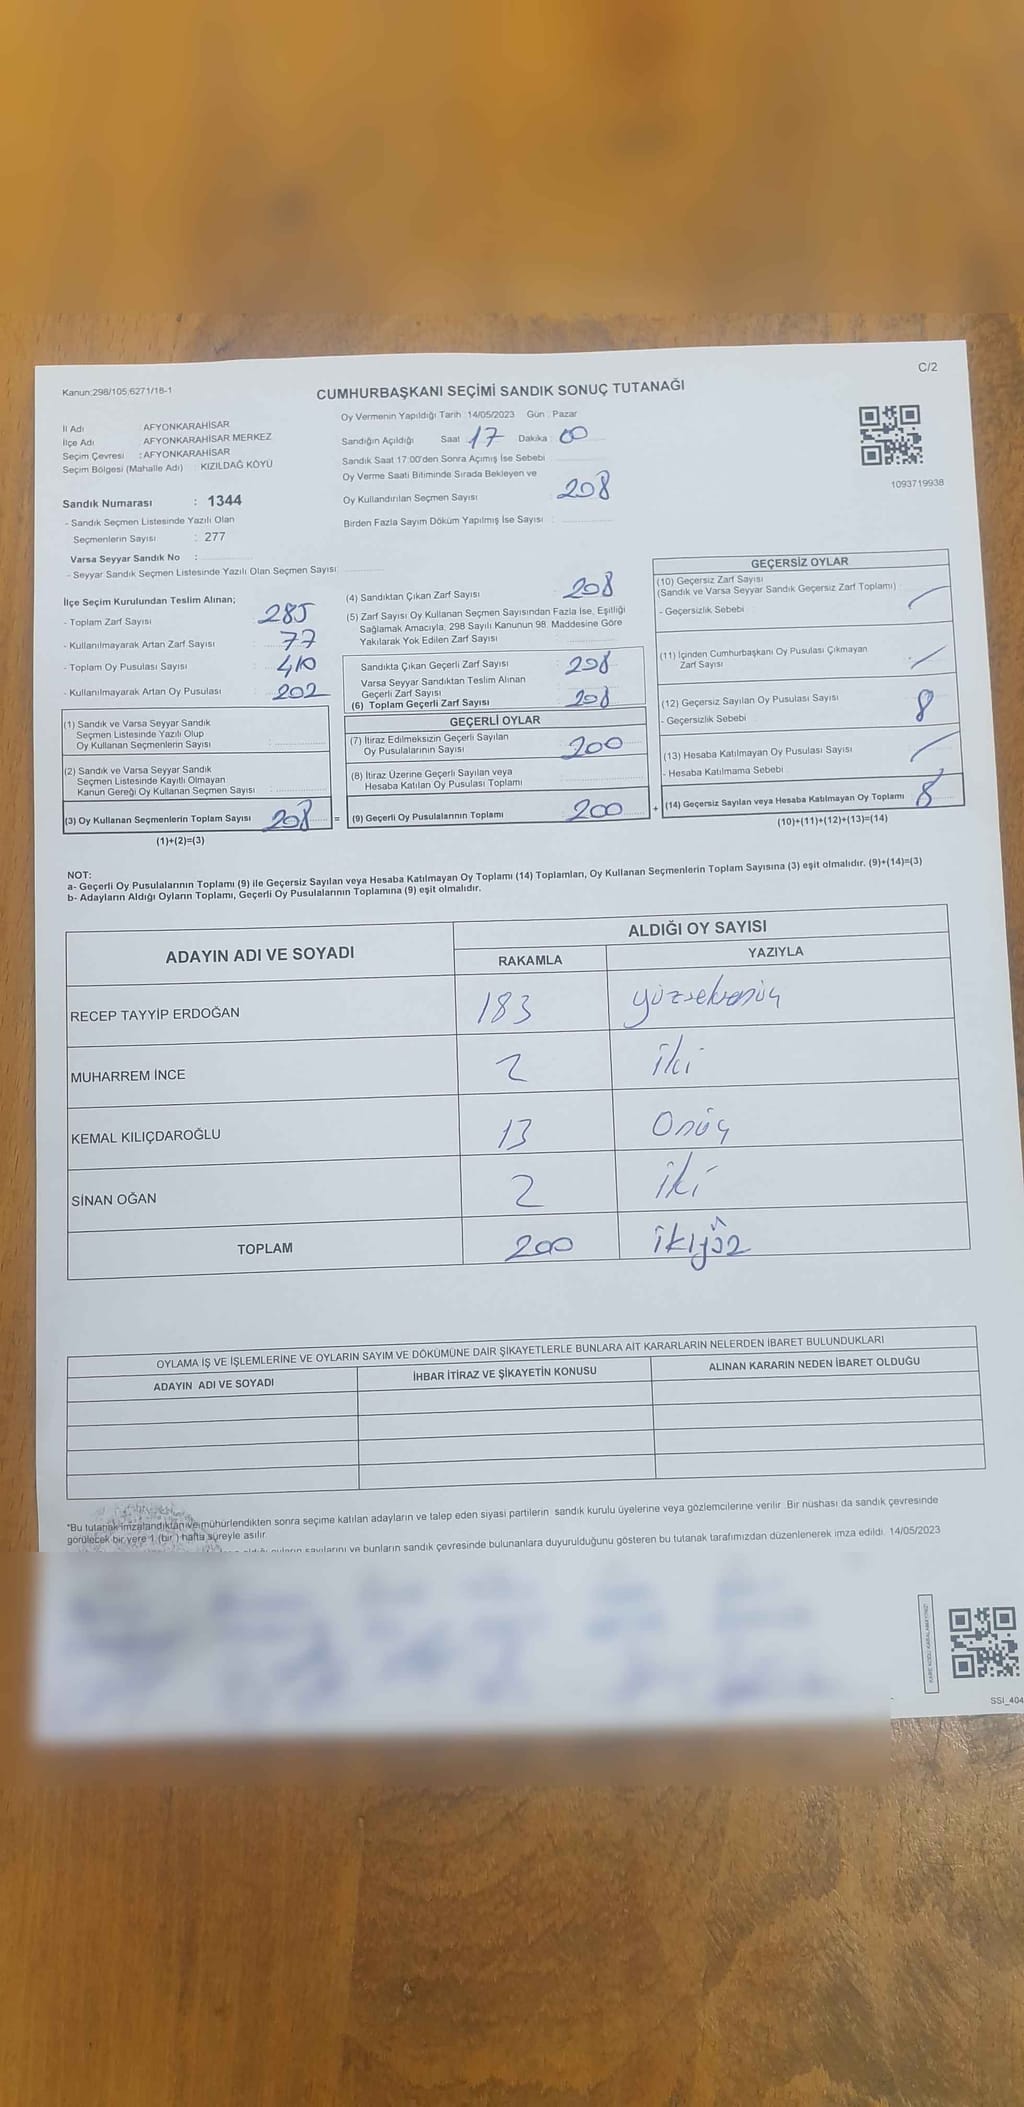 C/2
Kanun:298/105;6271/18-1
CUMHURBAŞKANI SEÇİMİ SANDIK SONUÇ TUTANAĞI
İl Adı AFYONKARAHİSAR
İlçe Adı AFYONKARAHİSAR MERKEZ
Seçim Çevresi : AFYONKARAHİSAR
Seçim Bölgesi (Mahalle Adı) KIZILDAĞ KÖYÜ
Sandık Numarası : 1344
- Sandık Seçmen Listesinde Yazılı Olan
Seçmenlerin Sayısı : 277
Varsa Seyyar Sandık No :
- Seyyar Sandık Seçmen Listesinde Yazılı Olan Seçmen Sayısı
Oy Vermenin Yapıldığı Tarih : 14/05/2023 Gün : Pazar
Sandığın Açıldığı Saat 17 Dakika : 00
Sandık Saat 17:00'den Sonra Açımış İse Sebebi
Oy Verme Saati Bitiminde Sırada Bekleyen ve
Oy Kullandırılan Seçmen Sayısı : 208
Birden Fazla Sayım Döküm Yapılmış İse Sayısı :
1093719938
İlçe Seçim Kurulundan Teslim Alınan;
- Toplam Zarf Sayısı 285
- Kullanılmayarak Artan Zarf Sayısı 77
- Toplam Oy Pusulası Sayısı 410
- Kullanılmayarak Artan Oy Pusulası 202
(1) Sandık ve Varsa Seyyar Sandık
Seçmen Listesinde Yazılı Olup
Oy Kullanan Seçmenlerin Sayısı
(2) Sandık ve Varsa Seyyar Sandık
Seçmen Listesinde Kayıtlı Olmayan
Kanun Gereği Oy Kullanan Seçmen Sayısı :
(3) Oy Kullanan Seçmenlerin Toplam Sayısı 208 =
(1)+(2)=(3)
(4) Sandıktan Çıkan Zarf Sayısı 208
(5) Zarf Sayısı Oy Kullanan Seçmen Sayısından Fazla İse, Eşitliği
Sağlamak Amacıyla, 298 Sayılı Kanunun 98. Maddesine Göre
Yakılarak Yok Edilen Zarf Sayısı
Sandıkta Çıkan Geçerli Zarf Sayısı 208
Varsa Seyyar Sandıktan Teslim Alınan
Geçerli Zarf Sayısı
(6) Toplam Geçerli Zarf Sayısı 208
GEÇERLİ OYLAR
(7) İtiraz Edilmeksizin Geçerli Sayılan
Oy Pusulalarının Sayısı 200
(8) İtiraz Üzerine Geçerli Sayılan veya
Hesaba Katılan Oy Pusulası Toplamı
(9) Geçerli Oy Pusulalarının Toplamı 200 +
GEÇERSİZ OYLAR
(10) Geçersiz Zarf Sayısı
(Sandık ve Varsa Seyyar Sandık Geçersiz Zarf Toplamı)
- Geçersizlik Sebebi
(11) İçinden Cumhurbaşkanı Oy Pusulası Çıkmayan
Zarf Sayısı
(12) Geçersiz Sayılan Oy Pusulası Sayısı 8
- Geçersizlik Sebebi
(13) Hesaba Katılmayan Oy Pusulası Sayısı
- Hesaba Katılmama Sebebi
(14) Geçersiz Sayılan veya Hesaba Katılmayan Oy Toplamı 8
(10)+(11)+(12)+(13)=(14)
NOT:
a- Geçerli Oy Pusulalarının Toplamı (9) ile Geçersiz Sayılan veya Hesaba Katılmayan Oy Toplamı (14) Toplamları, Oy Kullanan Seçmenlerin Toplam Sayısına (3) eşit olmalıdır. (9)+(14)=(3)
b- Adayların Aldığı Oyların Toplamı, Geçerli Oy Pusulalarının Toplamına (9) eşit olmalıdır.
ADAYIN ADI VE SOYADI ALDIĞI OY SAYISI
RAKAMLA YAZIYLA
RECEP TAYYİP ERDOĞAN 183 yüzseksenüç
MUHARREM İNCE 2 iki
KEMAL KILIÇDAROĞLU 13 Onüç
SİNAN OĞAN 2 iki
TOPLAM 200 ikiyüz
OYLAMA İŞ VE İŞLEMLERİNE VE OYLARIN SAYIM VE DÖKÜMÜNE DAİR ŞİKAYETLERLE BUNLARA AİT KARARLARIN NELERDEN İBARET BULUNDUKLARI
ADAYIN ADI VE SOYADI İHBAR İTİRAZ VE ŞİKAYETİN KONUSU ALINAN KARARIN NEDEN İBARET OLDUĞU
*Bu tutanak imzalandıktan ve mühürlendikten sonra seçime katılan adayların ve talep eden siyasi partilerin sandık kurulu üyelerine veya gözlemcilerine verilir. Bir nüshası da sandık çevresinde
görülecek bir yere 1 (bir ) hafta süreyle asılır.
sayılarını ve bunların sandık çevresinde bulunanlara duyurulduğunu gösteren bu tutanak tarafımızdan düzenlenerek imza edildi. 14/05/2023
KARE KODU KARALAMAYINIZ!
SSI_404